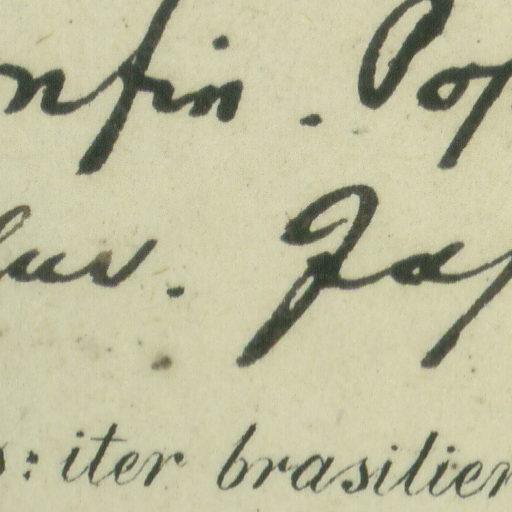 nfin. Pop
luv. Jap
s: iter brasilien